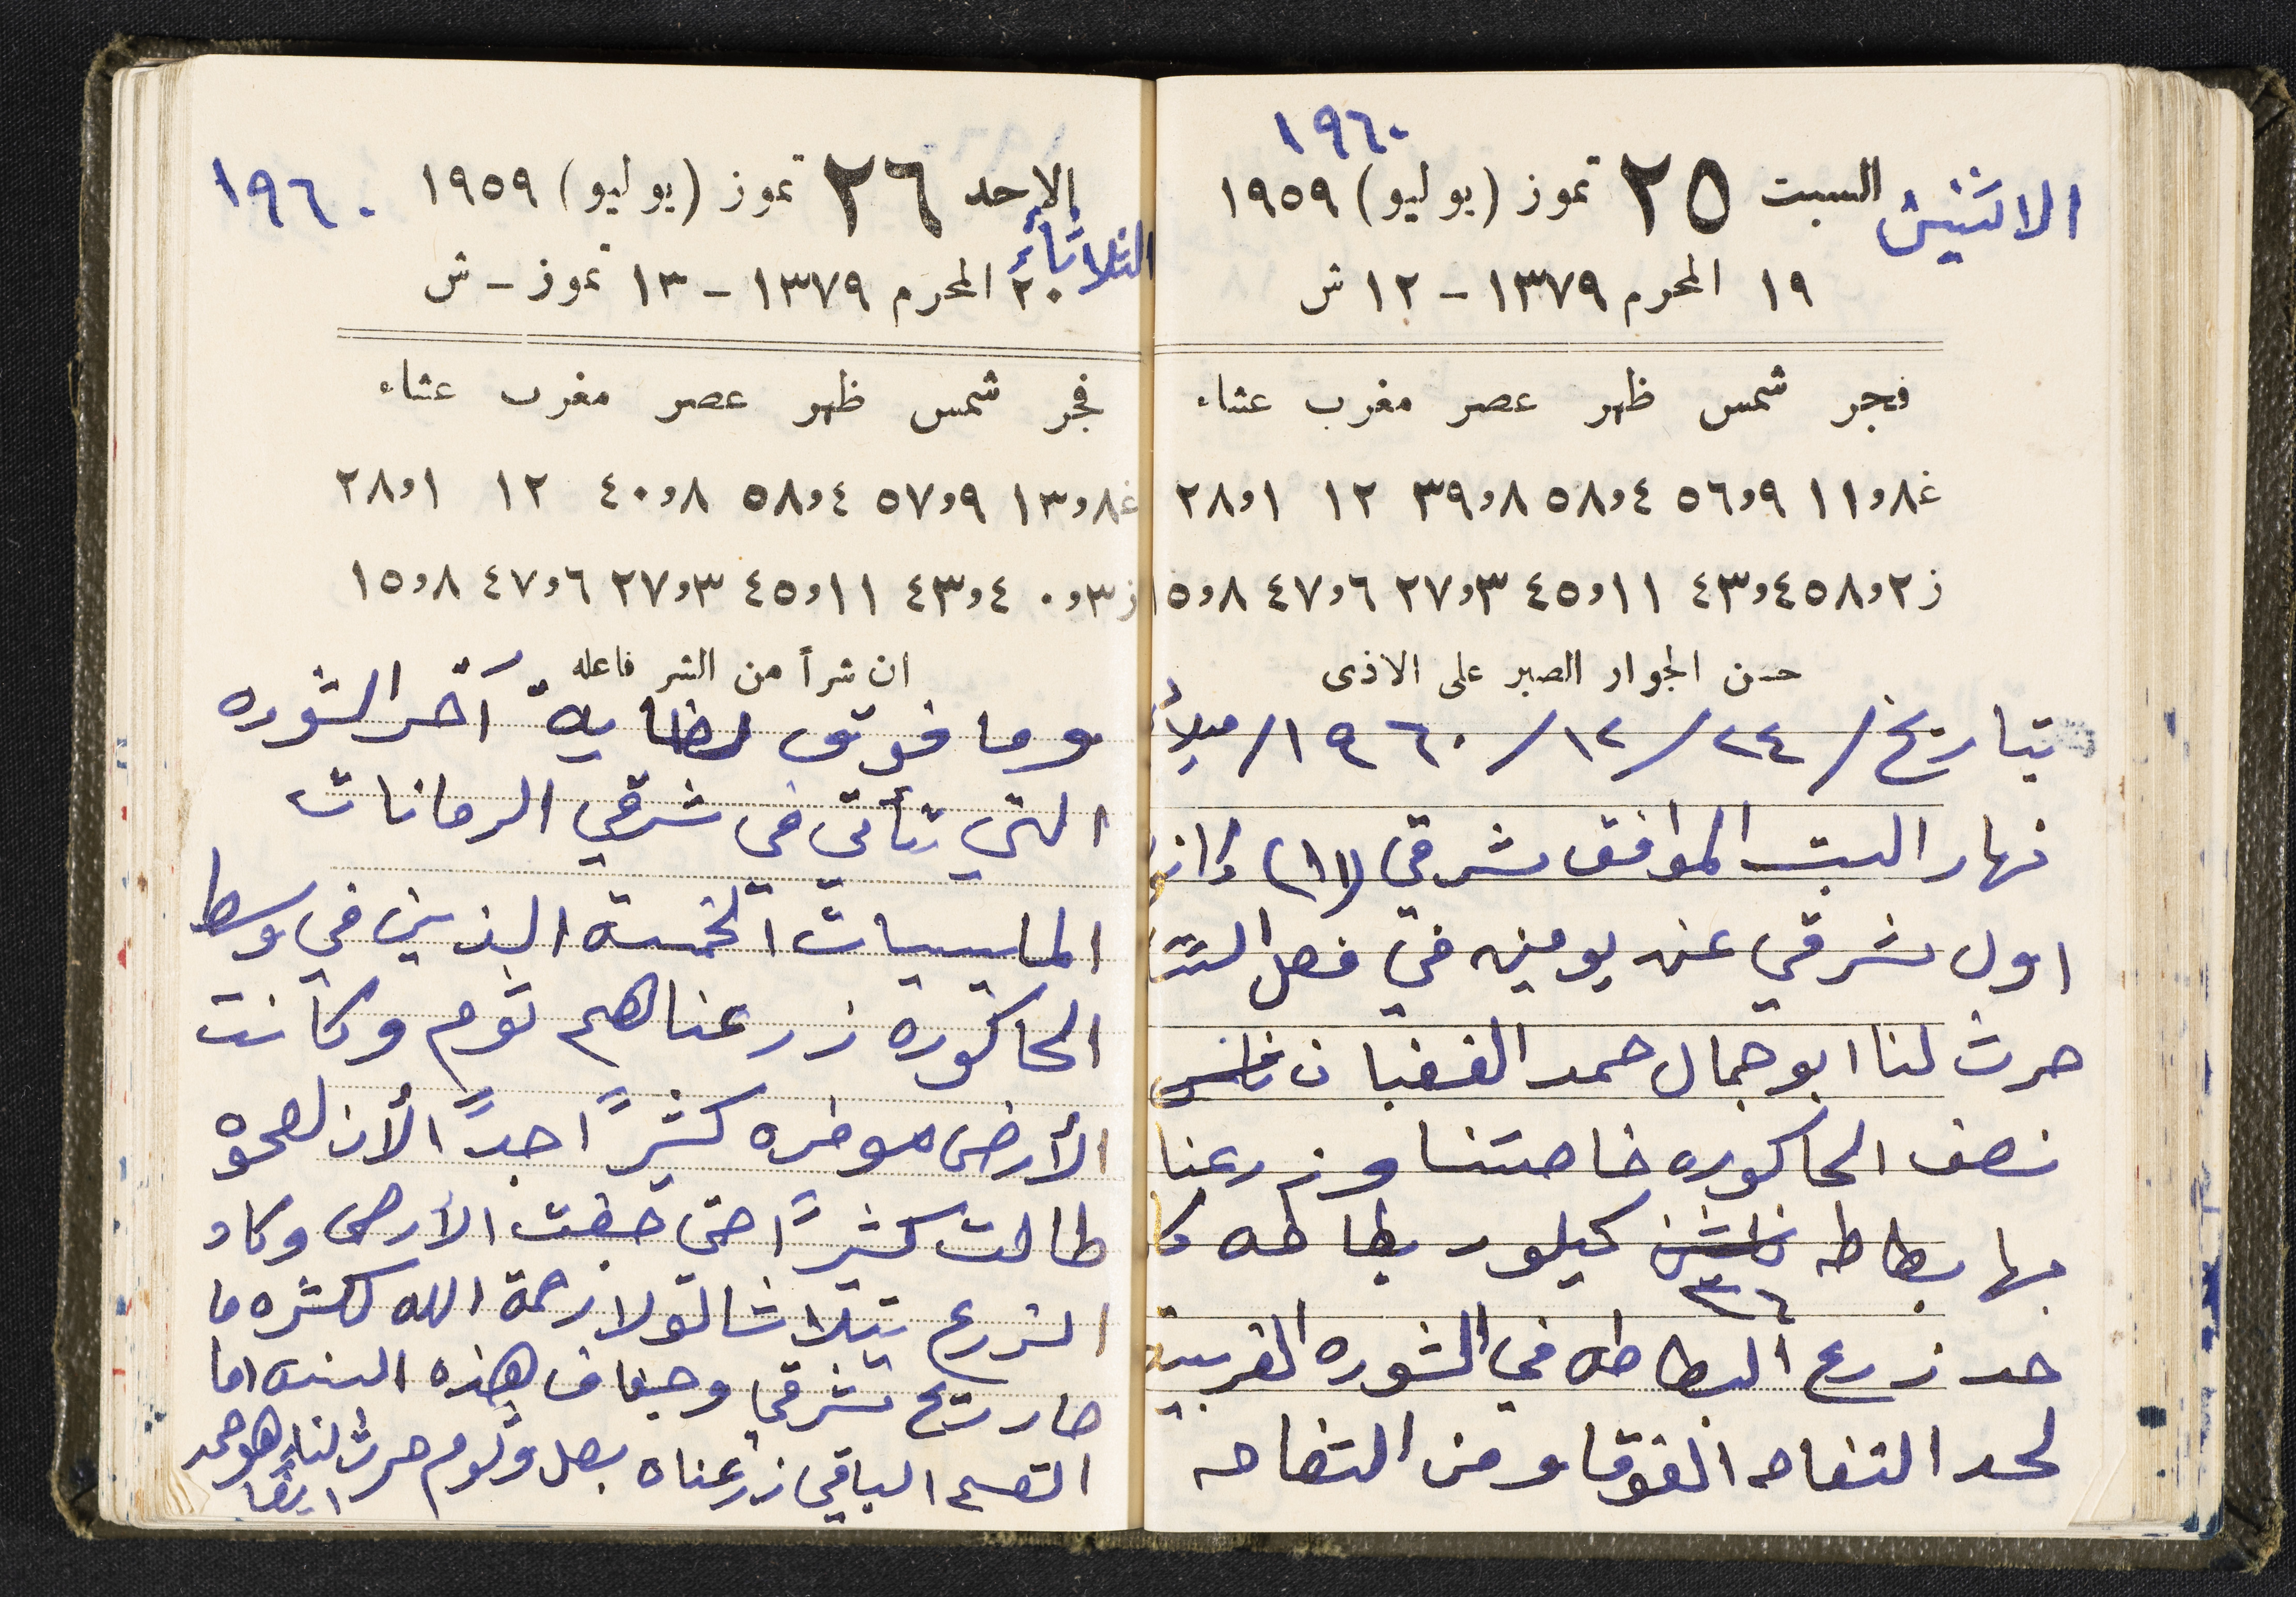 ١٩٦٠
الاثنين السبت ٢٥ تموز (يوليو) ١٩٥٩
١٩ المحرم ١٣٧٩ - ١٢ ش
فجر شمس ظهر عصر مغرب عشاء
غ ٨و١١ ٩و٥٦ ٤و٥٨ ٨و٣٩ ١٢ ١و٢٨
ز ٢و٥٨ ٤و٤٣ ١١و٤٥ ٣و٢٧ ٦و٤٧ ٨و١٥
حسن الجوار الصبر على الاذى
بتاريخ / ٢٤ / ١٢ / ١٩٦٠ /
نهار السبت الموافق شرقي (١١)
اول شرقي عنه يومين في فصل الشتا
حرث لنا ابو جمال حمد الغضبان
نصف الحاكوره خاصتنا وزرعنا
بها بطاطه كيلو بطاطه
٣٦
حد زرع البطاطه في الشوره الغربية
لحد التفاحه الفوقا ومن التفاحه
الاحد ٢٦ تموز (يوليو) ١٩٥٩ ١٩٦٠
الثلاثاء
٢٠ المحرم ١٣٧٩ - ١٣ تموز - ش
فجر شمس ظهر عصر مغرب عشاء
غ ٨و١٣ ٩و٥٧ ٤و٥٨ ٨و٤٠ ١٢ ١و٢٨
ز ٣و٠ ٤و٤٣ ١١و٤٥ ٣و٢٧ ٦و٤٧ ٨و١٥
ان شراً من الشر فاعله
وما فوق لغاية آخر الشوره
التي تأتي في شرقي الرمانات
الماييسيات الخمسة الذين في وسط
الحاكوره زرعناهم توم وكانت
الأرض موفره كثيرًا جدًا الأن لصحوه
طالت كثيرًا حتى جفت الأرض وكاد
الزرع يتلاشا لولا رحمة الله لكثره ما
صار ريح شرقي وجفاف هذه السنه اما
القسم الباقي زرعناه بصل وتوم حرث لنا هو حمد
ايضًا